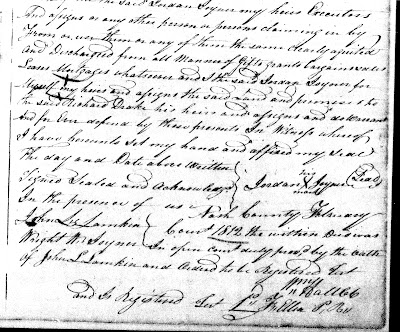 the said Jordan Joyner my heirs Executors
And assigns or any other person or persons claiming in by
From or under them or any of them the same clearly aquited
And Discharged from all Manner of Gifts grants Bargains sales
Leases Mortgages whatsoever and I the said Jordan Joyner for
Myself my heirs and assigns the said land and premises to
the said Richard Drake his heirs and assigns and do warrant
And for ever defend by these presents In Witness whereof
I have hereunto set my hand and affixed my seal
The day and Date above Written
Signed Sealed and Acknowledged Jordan his mark Joyner Seal
In the presence of us Nash County February
John L. Lamkin Court 1812 the within Deed was
Wright W. Joyner In open Court duly proved by the oath
of John L. Lamkin and Ordered to be Registered Test
Wm Hall CC
and is Registered Test